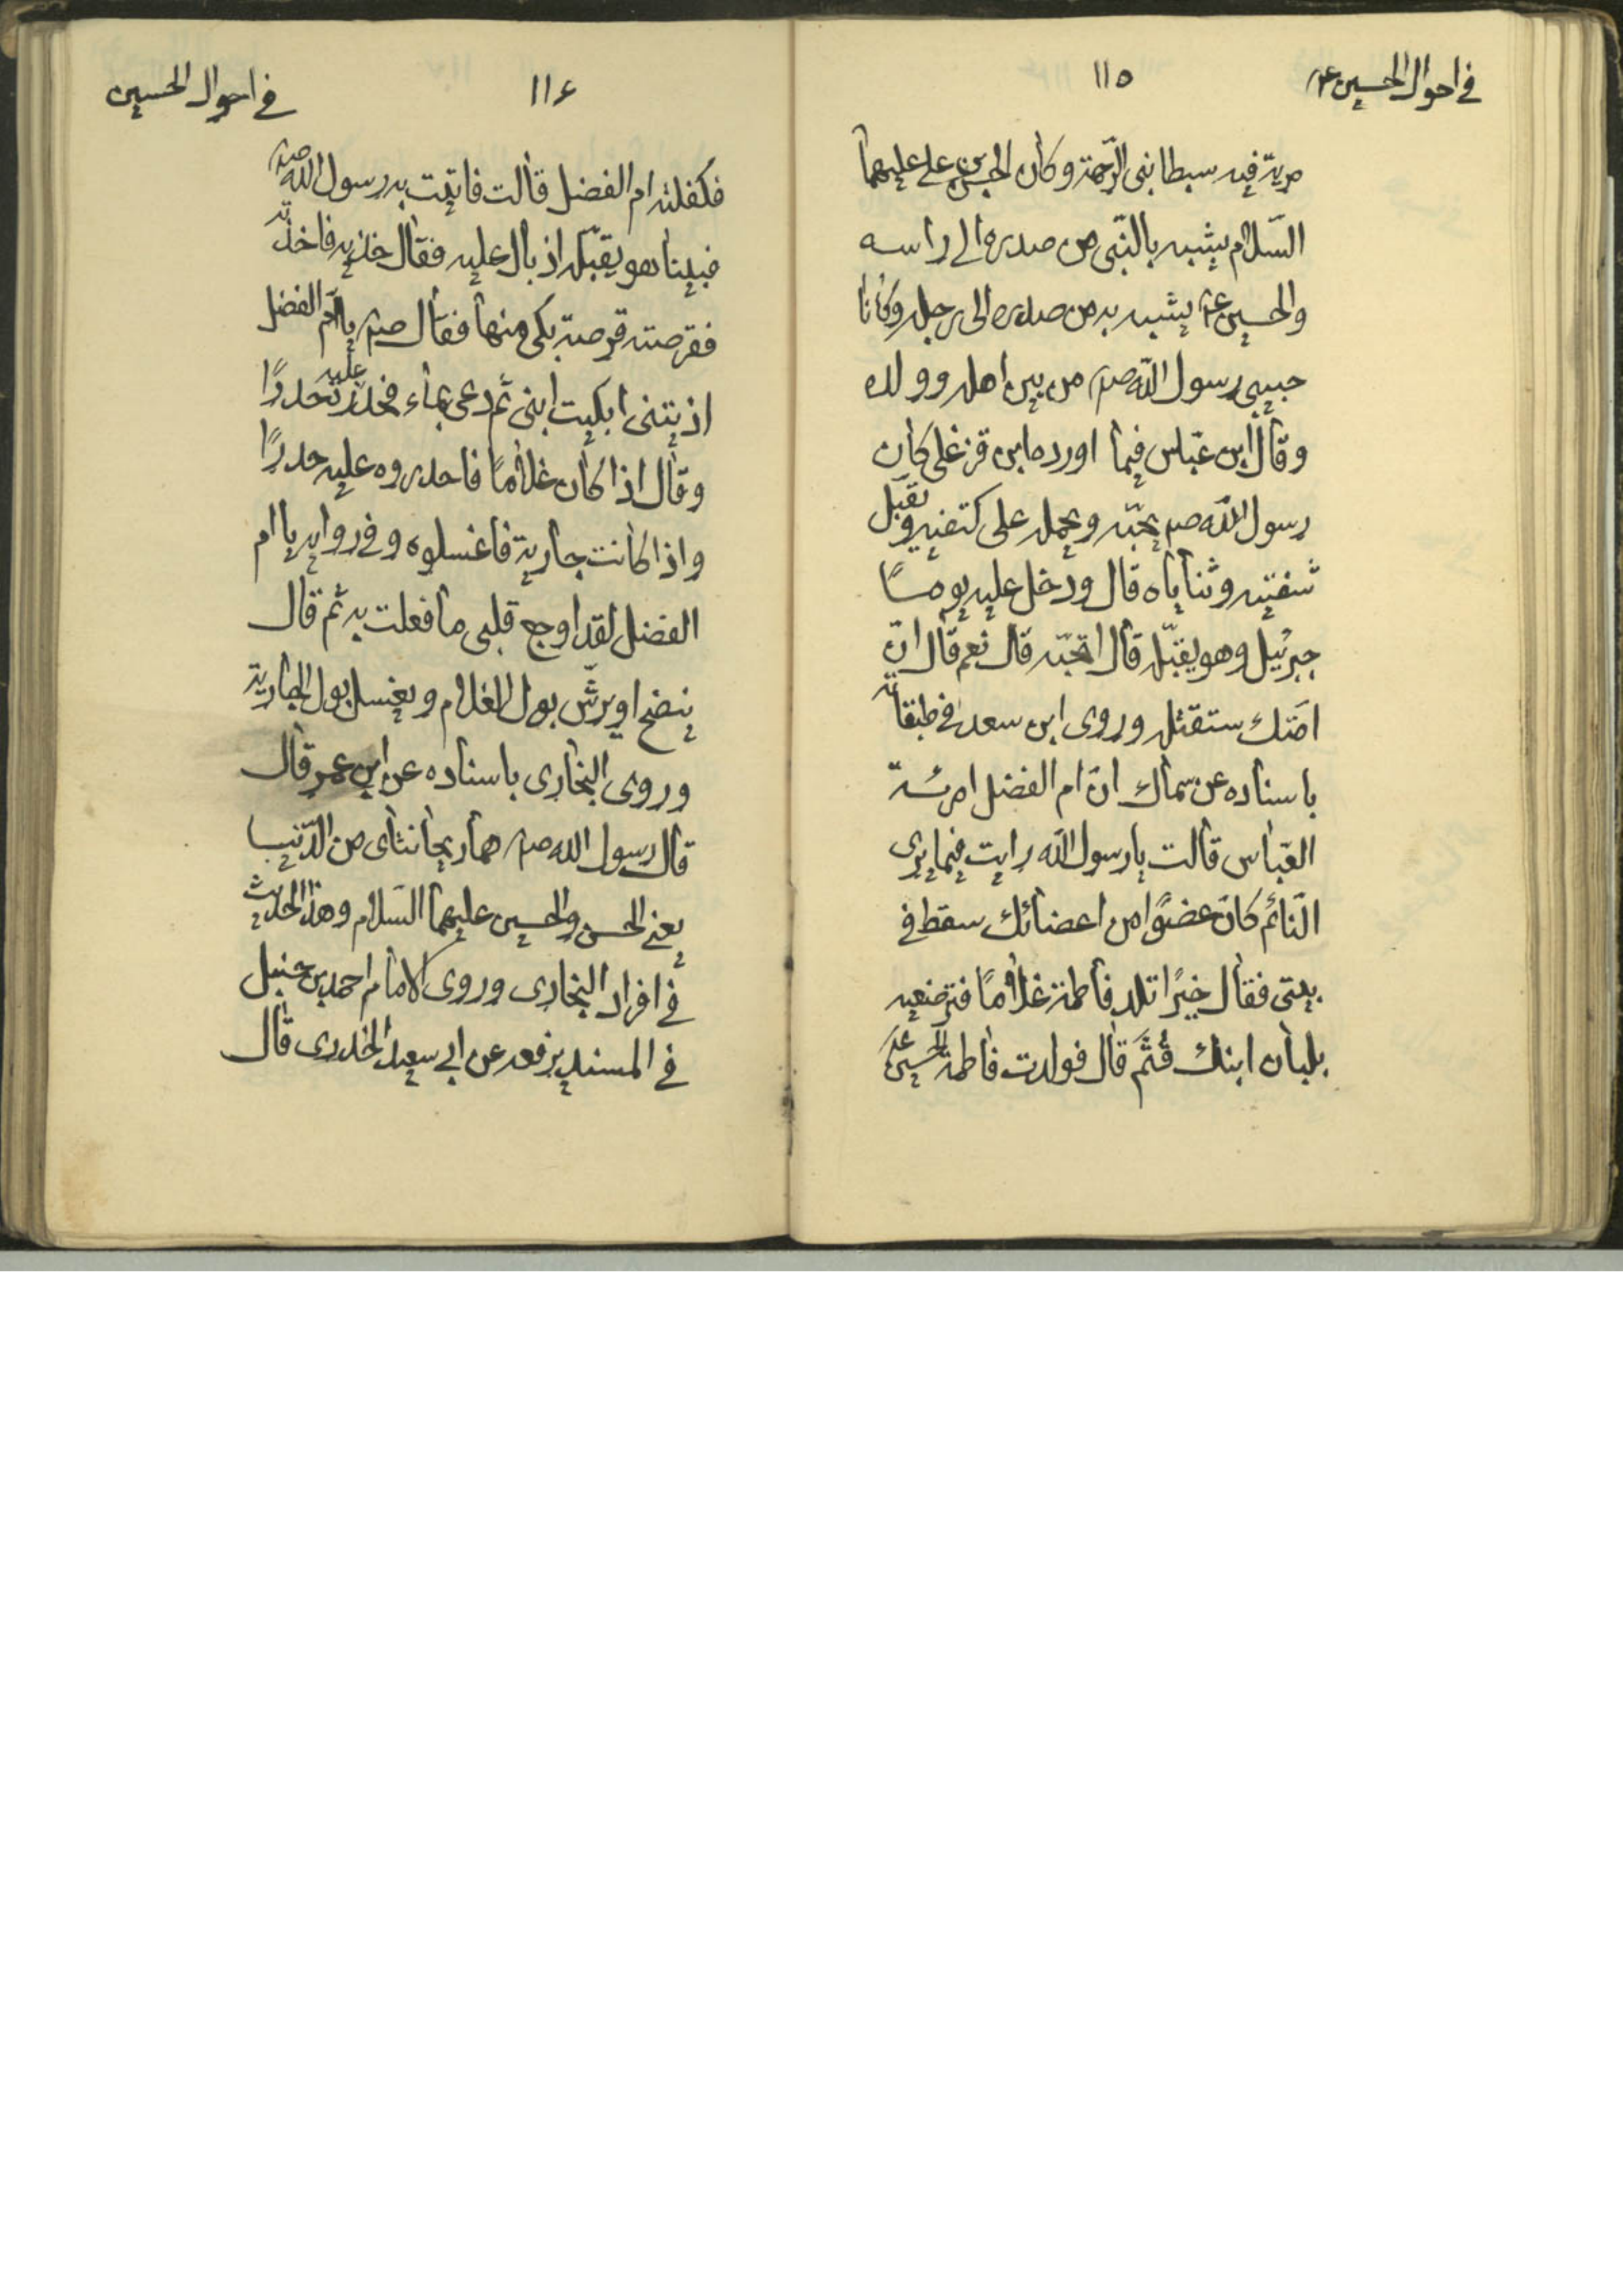 في احوال الحسين ع
١١٥
مرية فيه سبطا نبى الرّحمة وكان الحسن بن على عليهما
السّلام يشبه بالنّبى من صدره الى راسه
والحسين ع يشبه به من صدره الى رجله وكانا
حبيبى رسول اللّه صم من بين اهله وولده
وقال ابن عبّاس فيما اورده ابن قزغلى كان
رسول اللّه صم يحبّه ويحمله على كتفيه ويقبّل
شفتيه وثناياه قال ودخل عليه يومًا
جبرئيل وهو يقبّله قال اتحبّه قال نعم قال انّ
امّتك ستقتله وروى ابن سعد في طبقاته
باسناده عن سماك انّ ام الفضل امرئة
العبّاس قالت يا رسول اللّه رايت فيما يرى
النّائم كانّ عضوًا من اعضائك سقط في
بيتى فقال خيرًا تلد فاطمة غلامًا فترضعيه
بلبان ابنك قُثَم قال فولدت فاطمة الحسين ع
١١٦
في احوال الحسين
فكفلته ام الفضل قالت فاتيت به رسول اللّه صم
فبينا هو يقبّله اذ بال عليه فقال خذيه فاخذته
فقرصته قرصة بكى منها فقال صم يا امّ الفضل
اذيتنى ابكيت ابنى ثم دعى بماء فحدّر عليه تحدرًا
وقال اذا كان غلامًا فاحدروه عليه حدرًا
واذا كانت جارية فاغسلوه وفي رواية يا ام
الفضل لقد اوجع قلبى ما فعلت به ثم قال
ينضح او يرشّ بول الغلام ويغسل بول الجارية
وروى البخارى باسناده عن ابن عمر قال
قال رسول الله صم هما ريحانتاى من الدّنيا
يعنى الحسن والحسين عليهما السّلام وهذا الحديث
في افراد البخارى وروى الامام احمد بن حنبل
في المسند يرفعه عن ابى سعيد الخدرى قال